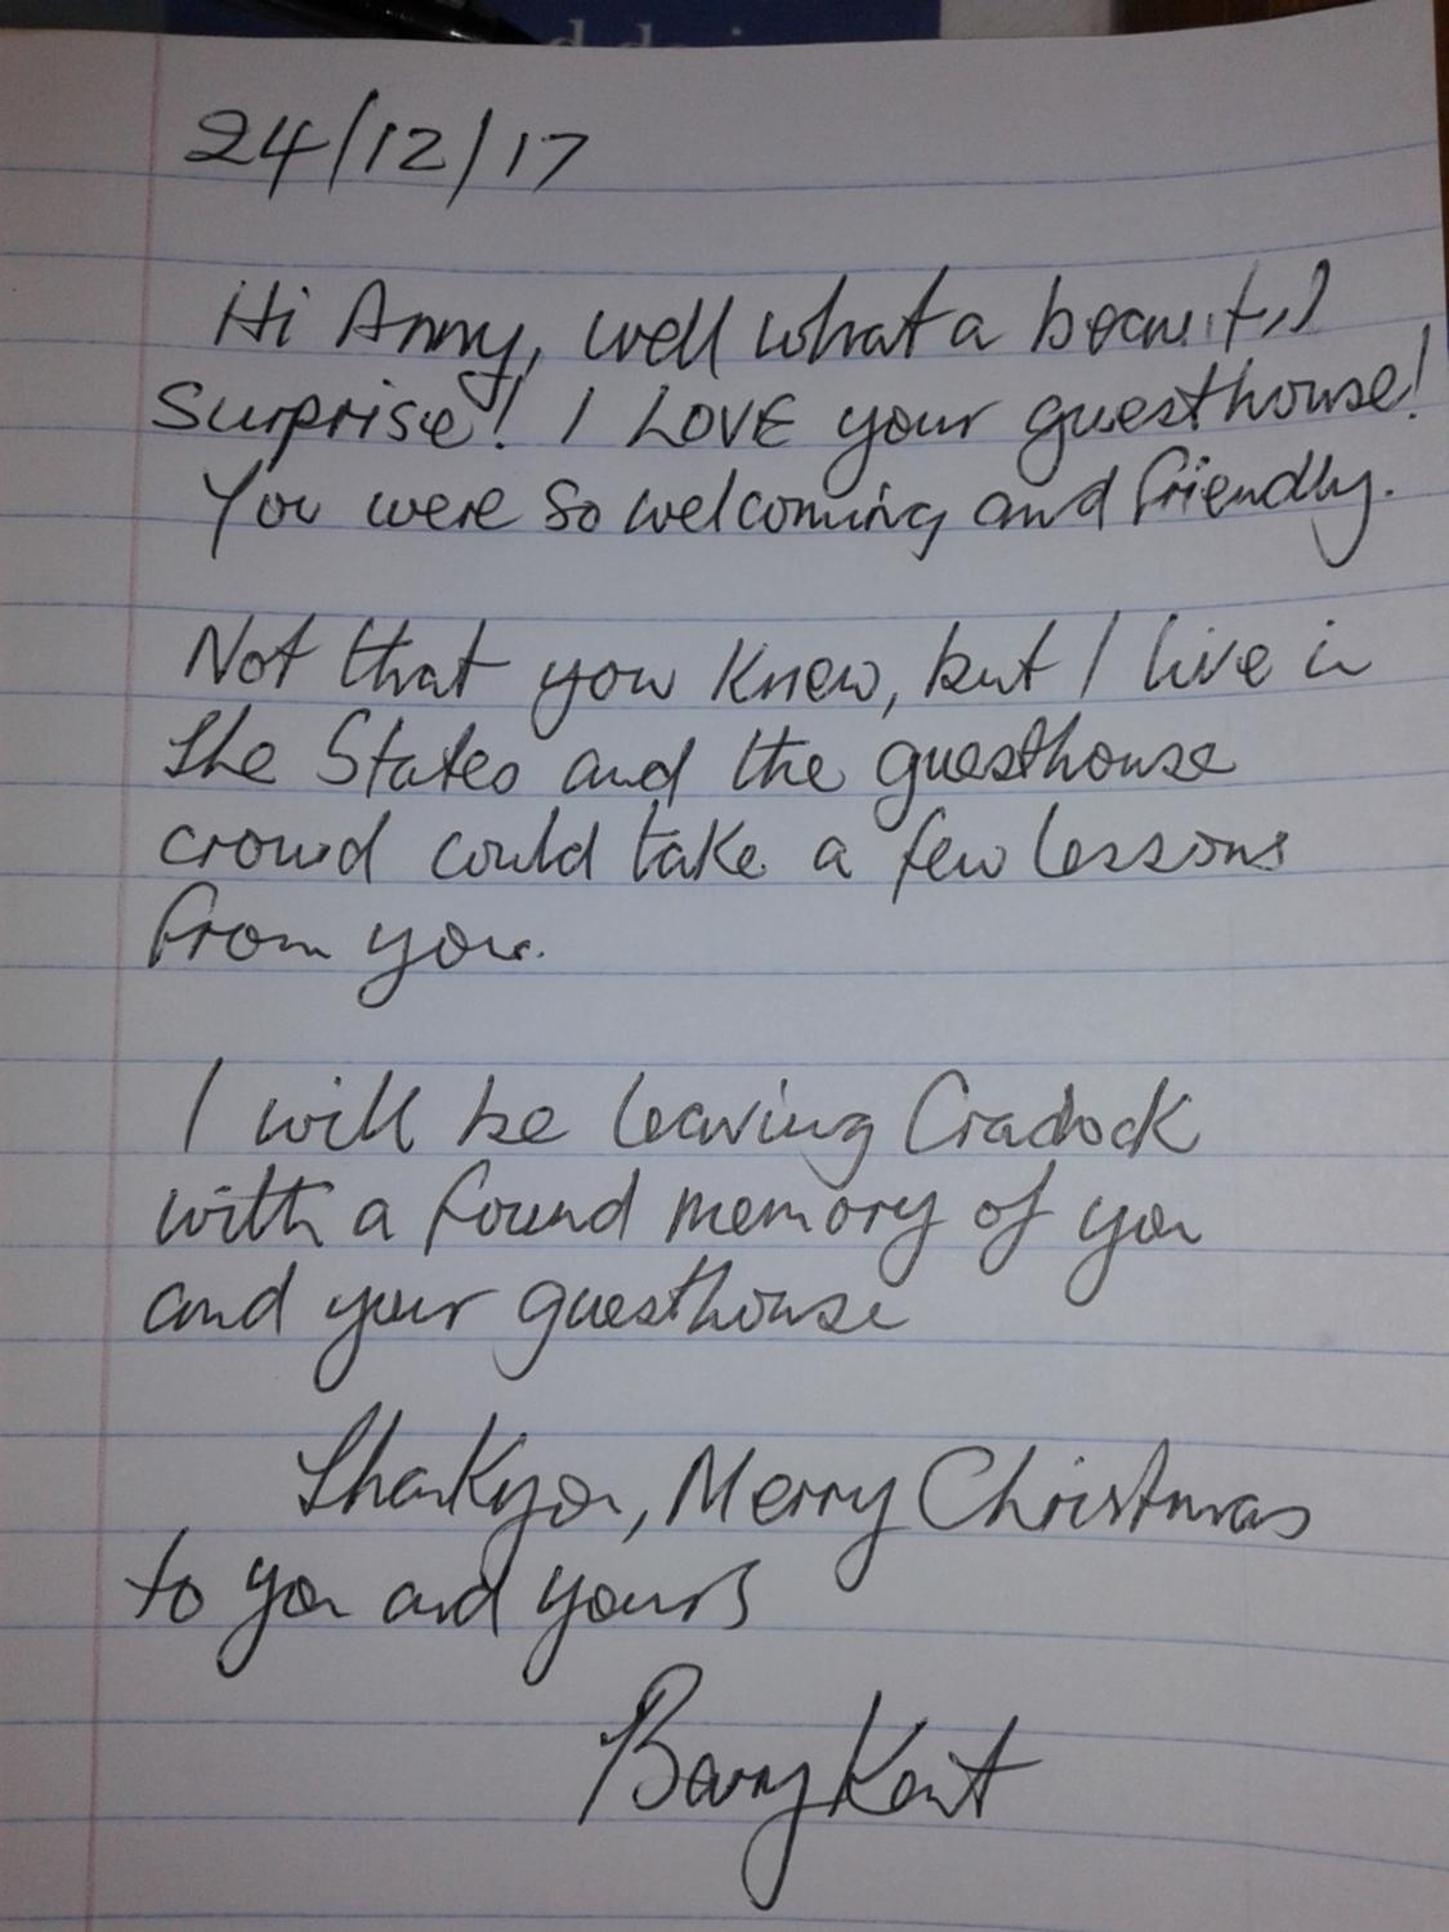 24/12/17
Hi Anny, well what a beautiful
Surprise! I LOVE your guesthouse!
You were so welcoming and friendly.
Not that you knew, but I live in
the States and the guesthouse
crowd could take a few lessons
from you.
I will be leaving Cradock
with a found memory of you
and your guesthouse
Thankyou, Merry Christmas
to you and yours
Barry Kent